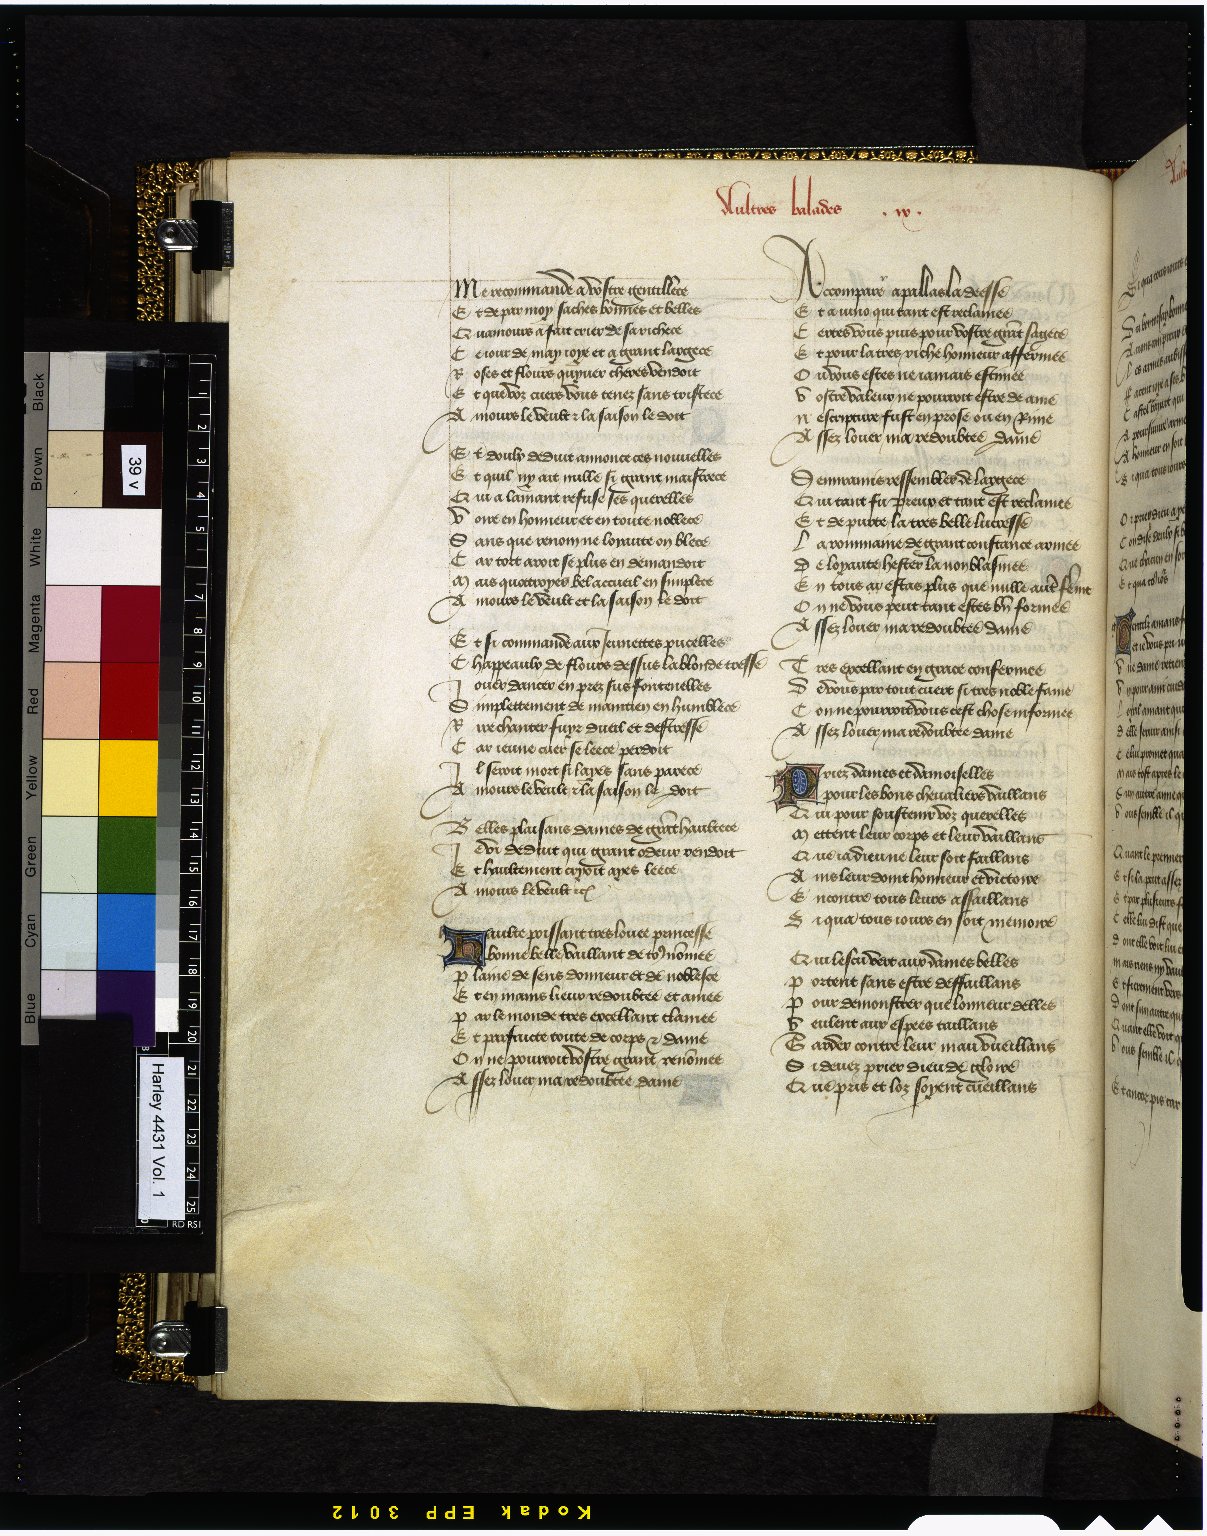 Aultres balades . ix .
Me recommande a vostre gentillece
Et de par moy saches bonnes et belles
Quamours a fait crier de sa richece
Ce iour de may ioye et a grant largece
Roses et flours quyuer cheres vendoit
Et que voz cuers vous tenez sans tristece
Amours le veult et la saison le doit
Et doulz deduit annonce ces nouuelles
Et quil ny ait nulle si grant maistrece
Qui a lamant refuse ses querelles
Voire en honneur et en toute noblece
Sans que renom ne loyaute on blece
Car tort aroit se plus en demandoit
Mais quottroyes bel accueil en simplece
Amours le veult et la saison le doit
Et si commande aux Jeunettes pucelles
Chappeaulx de flours dessus la blonde tresse
Jouer dancer en prez sus fontenelles
Simplettement de maintien en humblece
Rire chanter fuyr dueil et destresse
Car ieune cuer se leece perdoit
Jl seroit mort si layes sans parece
Amours le veult et la saison le doit
Belles plaisans dames de grant haultece
Je vi deduit qui grant odeur rendoit
Et haultement crydit ayes leece
Amours le veult etc
Haulte poissant tres louee princesse
bonne belle vaillant de tous nommee
plaine de sens donneur et de noblesce
Et en mains lieux redoubtee et amee
par le monde tres excellant clamee
Et parfaicte toute de corps et dame
On ne pourroit vostre grant renommee
Assez louer ma redoubtee dame
Accomparer a pallas la deesse
Et a iuno qui tant est reclamee
Certes vous puis pour vostre grant sagece
Et pour la tres riche honneur affermee
Ou vous estes ne iamais estimee
Vostre valeur ne pourroit estre de ame
Nescripture fust en prose ou en Rime
Assez louer ma redoubtee dame
Semiramis ressembles de largece
Qui tant fu preux et tant est reclamee
Et de purte la tres belle lucresse
La rommaine de grant constance armee
de loyaute hester la non blasmee
En tous cas estas plus que nulle autre femme
On ne vous peut tant estes bien formee
Assez louer ma redoubtee dame
Tres excellant en grace confermee
De vous par tout cuert si tres noble fame
Con ne pourroit vous cest chose informee
Assez louer ma redoubtee dame
Priez dames et damoiselles
pour les bons cheualiers vaillans
Qui pour soustenir voz querelles
Mettent leur corps et leur vaillant
Que ia dieu ne leur soit faillans
Ains leur doint honneur et victoire
Encontre tous leurs assaillans
Si qua tous iours en soit memoire
Qui lescu vert aux dames belles
portent sans estre deffaillans
pour demonstrer que lonneur delles
Veulent aux espees taillans
Garder contre leur mau vueillans
Si deuez prier dieu de gloire
Que pris et loz soyent cueillans
Black
Brown
White
Magenta
Red
Yellow
Green
Cyan
Blue
39 v
Harley 4431 Vol. 1
2
3
4
5
7
8
9
10
11
12
13
14
15
16
17
18
19
20
21
22
23
24
25
RD RSI
Kodak EPP 3012